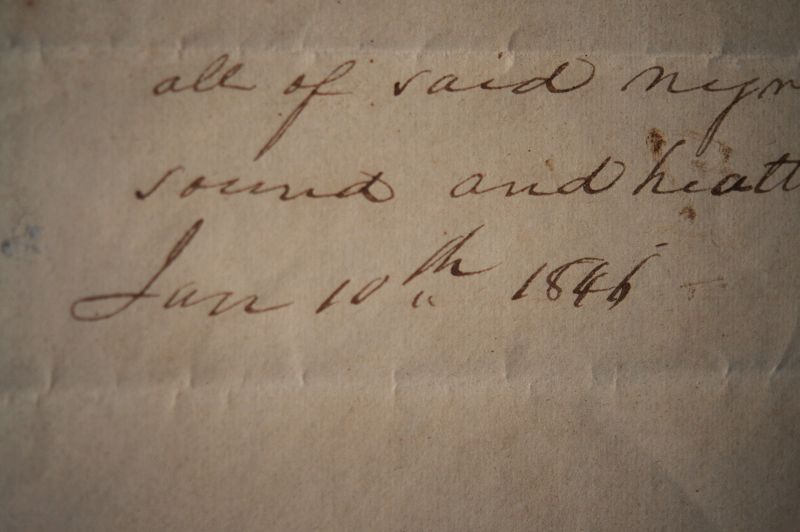 all of said negr
sound and healt
Jan 10th 1846